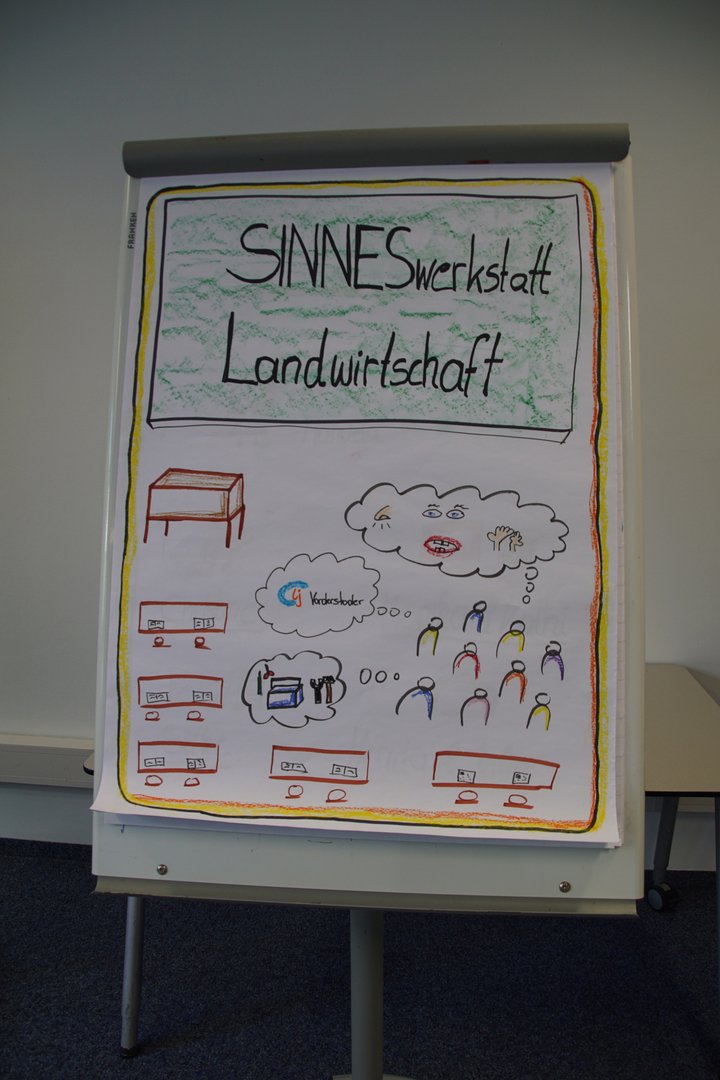 SINNESwerkstatt
Landwirtschaft
Vorderstoder
FRANKEN